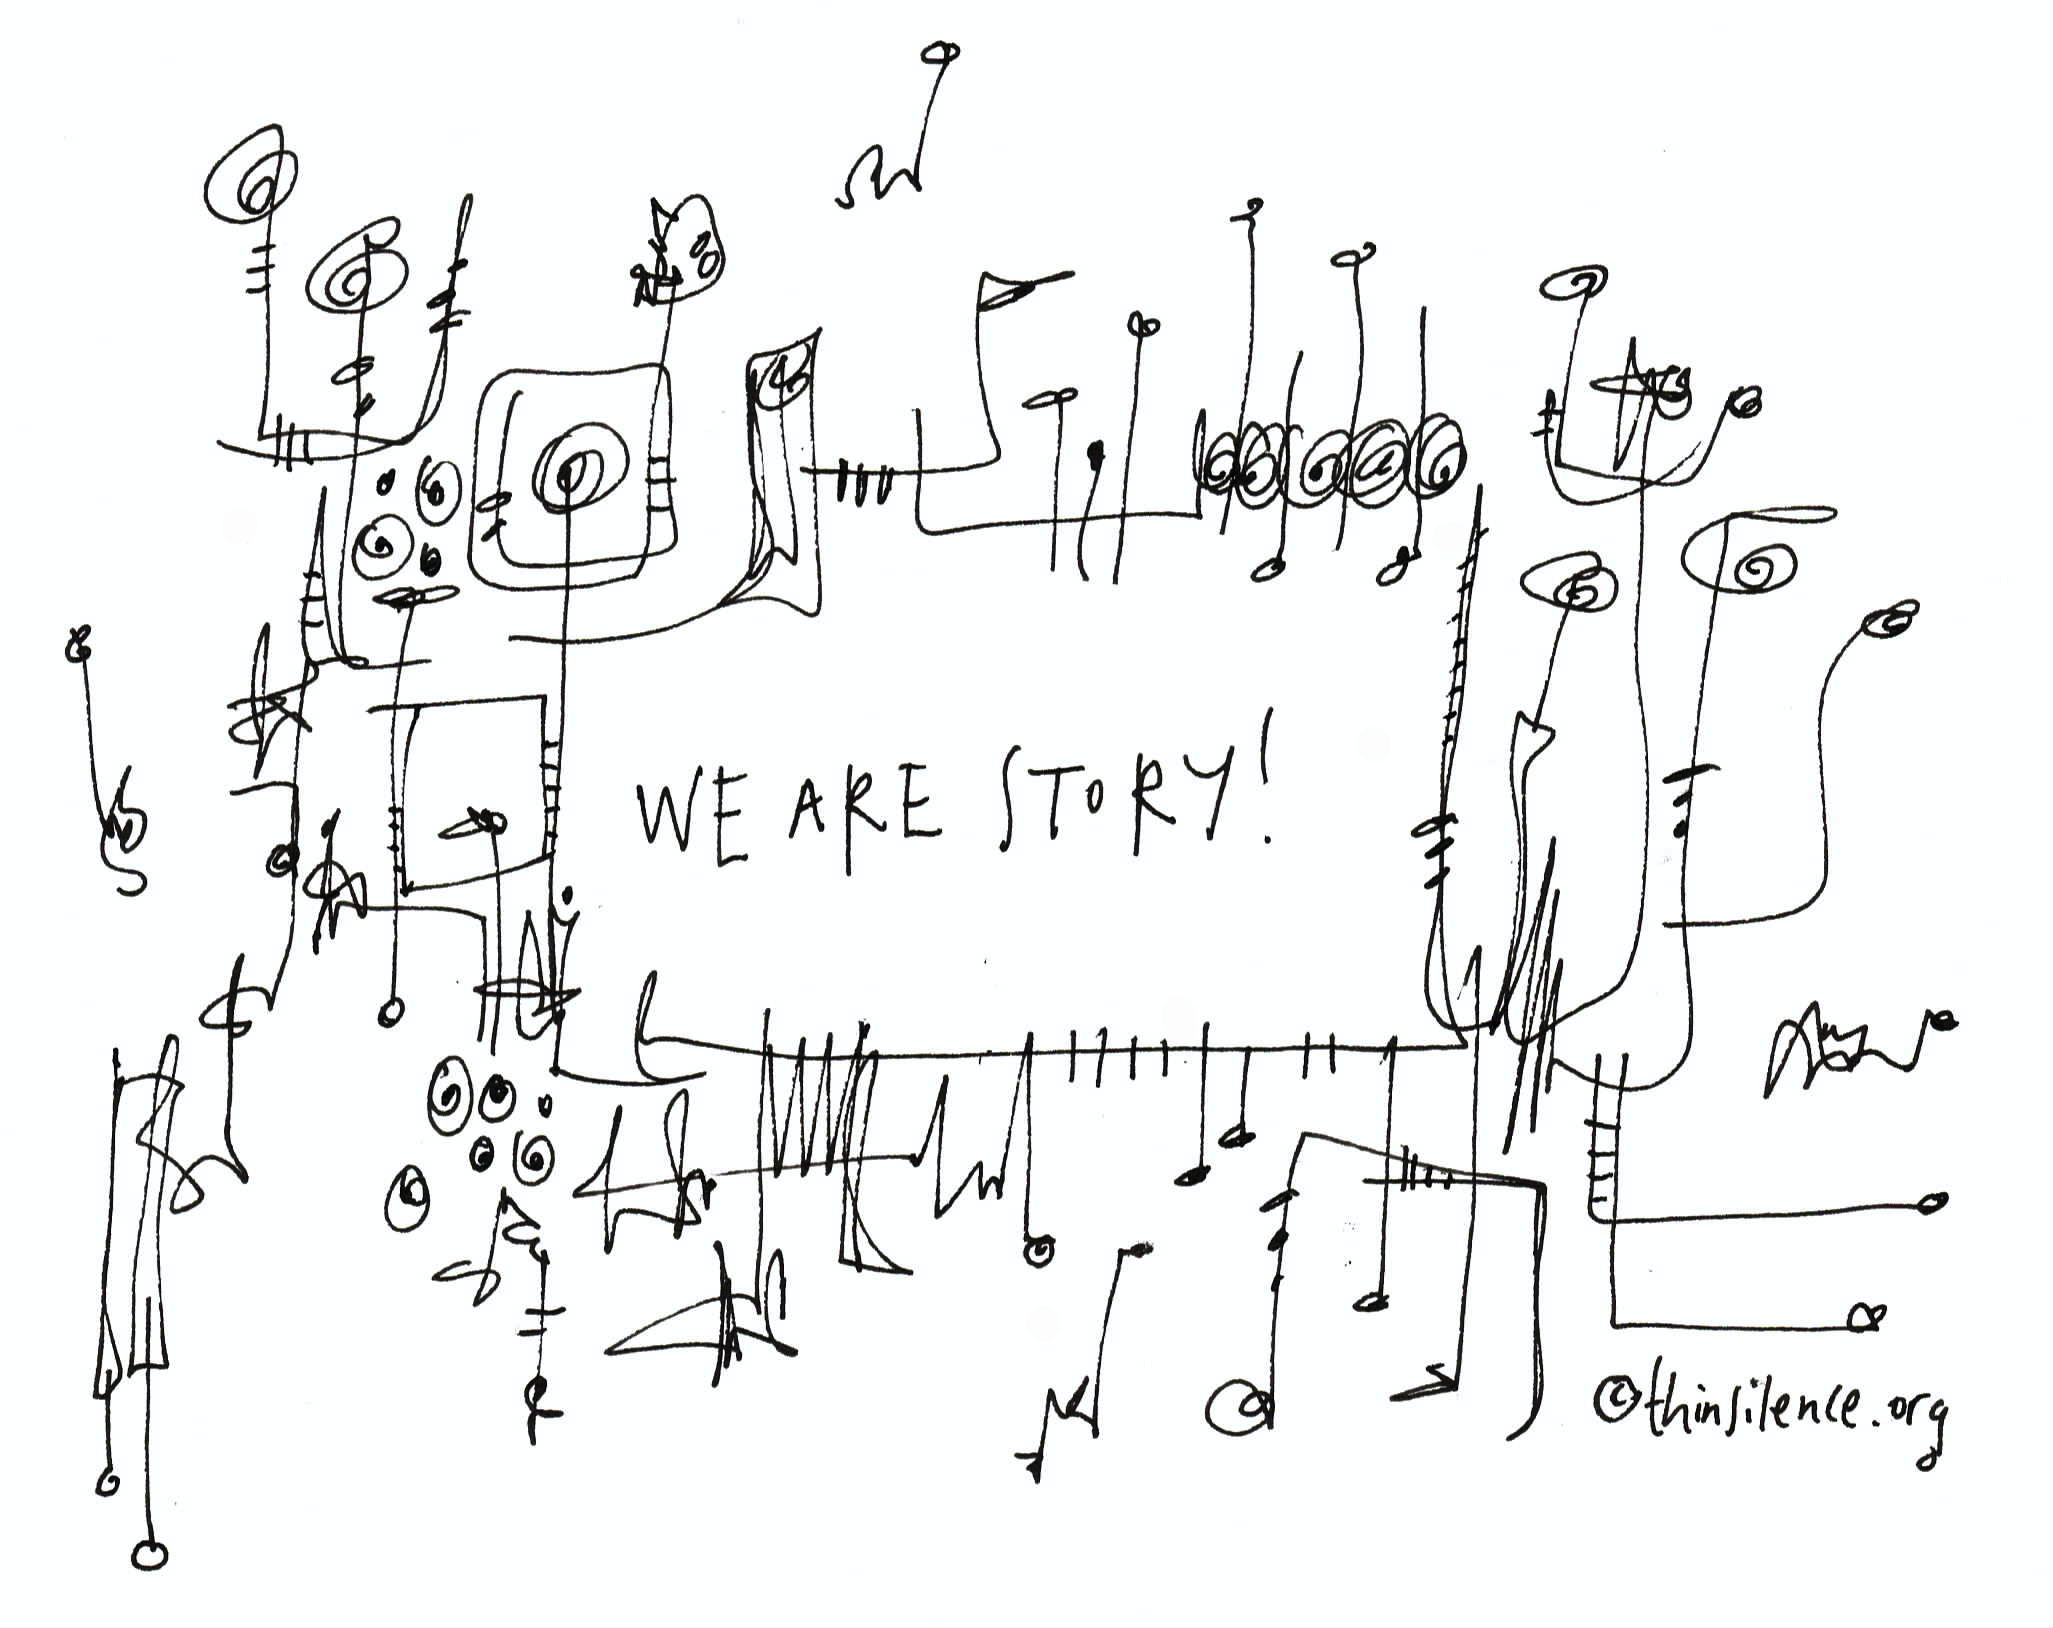 WE ARE STORY!
©thinsilence.org